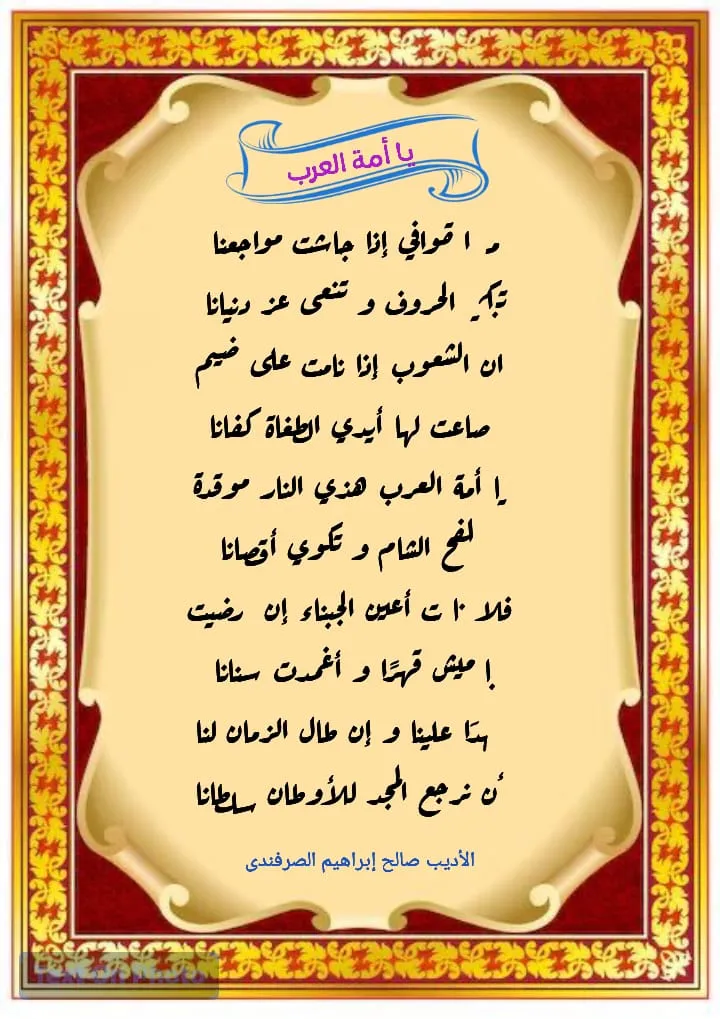 يا أمة العرب
قوافي إذا جاشت مواجعنا
الحروف و تنعى عز دنيانا
ان الشعوب إذا نامت على ضيم
صاعت لها أيدي الطغاة كفانا
أمة العرب هذي النار موقدة
لفح الشام و تكوي أقصانا
فلا أعين الجبناء إن رضيت
قهرًا و أغمدت سنانا
علينا و إن طال الزمان لنا
أن نرجع المجد للأوطان سلطانا
الأديب صالح إبراهيم الصرفندى